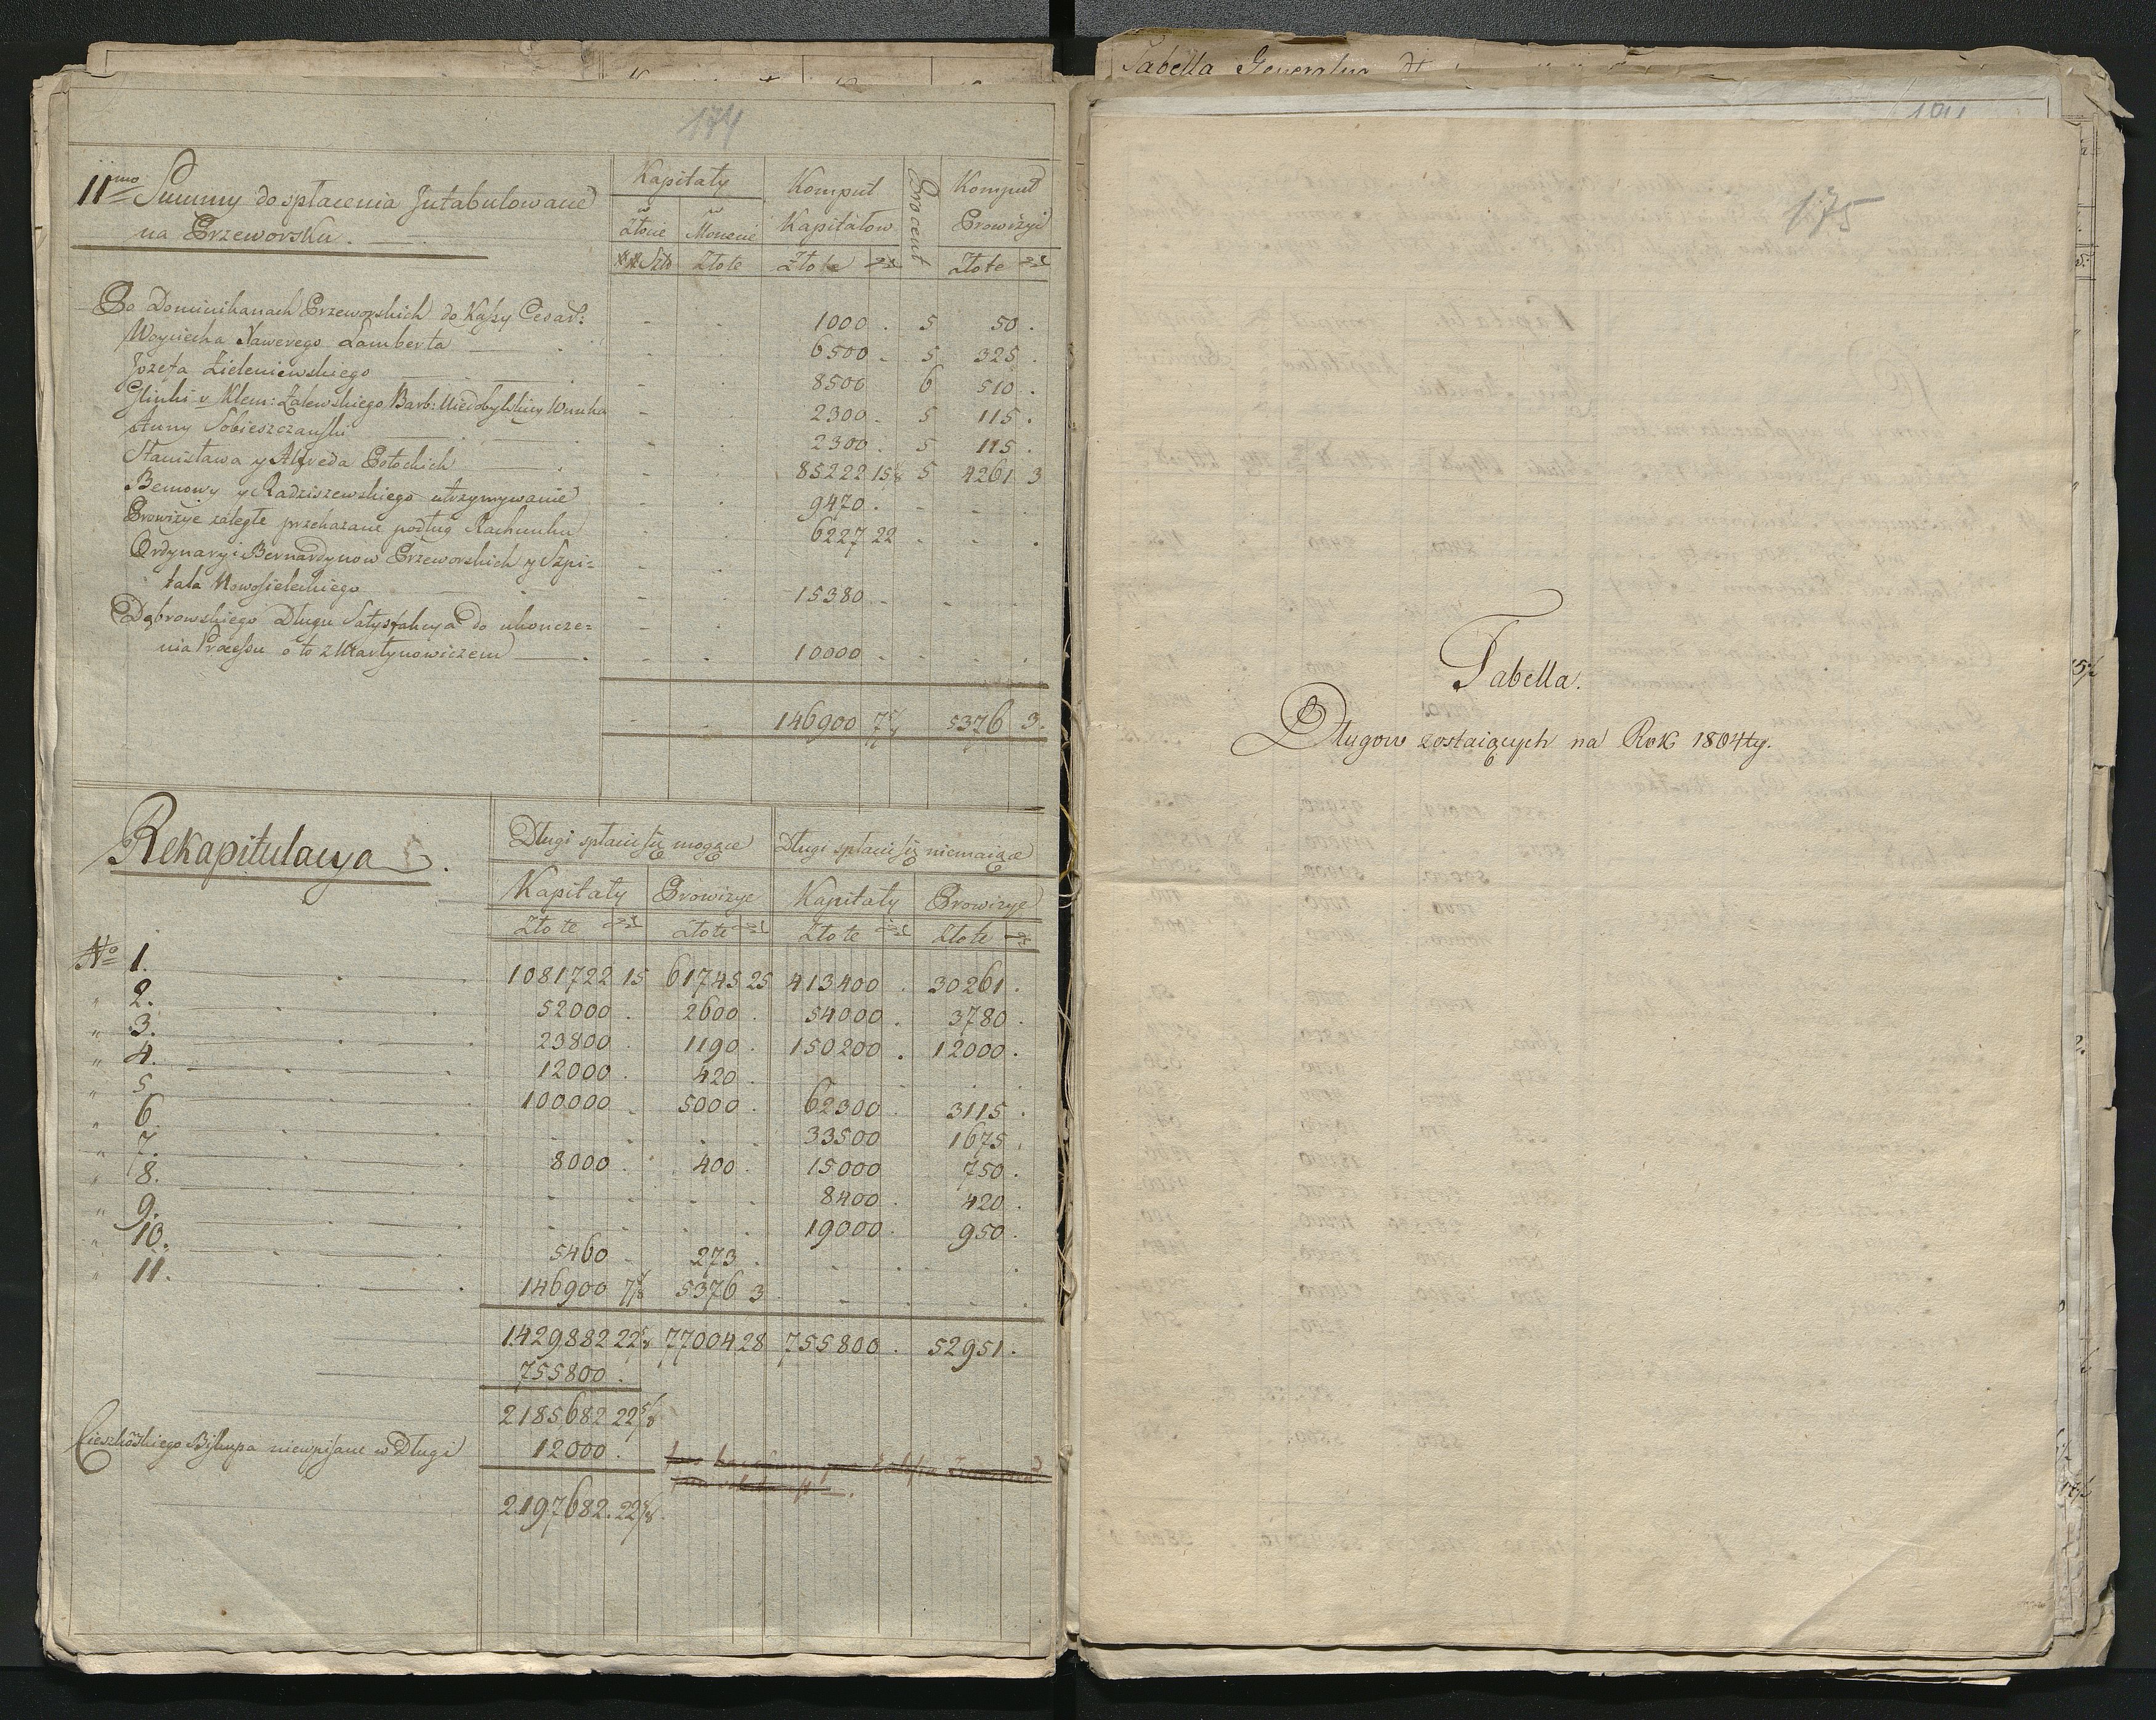 174
11mo Summy do spłacenia Intabulowane
na Przeworsku.
Kapitały
Komput
Kapitałow
Procent
Komput
Prowizyi
w Złocie
w Monecie
Złote
Złote gr
Złote gr
Po Dominikanach Przeworskich do Kaſsy Cesar: 1000 . 5 50 .
Woyciecha Xawerego Lamberta 6500 . 5 325 .
Jozefa Zieleniewskiego 8500 6 510 .
Glinki v Klem: Zalewskiego Barb: 2300 . 5 115 .
Anny Sobieszczański 2300 . 5 115 .
Stanisława y Alfreda Potockich 85222 15 5 4261 3
Bemowy y Radziszewskiego utrzymywanie 9470 .
Prowizye zaległe przekazane podług Rachunku 6227 22
Ordynaryi Bernardynow Przeworskich y Szpi=
tala Nowosieleckiego 15380
Dąbrowskiego Długu Satysfakcya do ukończe=
nia Proceſsu o to z Martynowiczem 10000
146900 7 5376 3.
Rekapitulacya.
Długi spłacić się mogące
Długi spłacić się niemaiące
Kapitały Prowizye Kapitały Prowizye
Złote gr Złote gr Złote gr Złote gr
No 1. 1081722 15 61745 25 413400 . 30261 .
" 2. 52000 . 2600 . 54000 . 3780 .
" 3. 23800 1190 . 150200 . 12000 .
" 4. 12000 . 420 .
" 5 100000 5000 . 62300 . 3115 .
" 6. 33500 1675 .
" 7. 8000 . 400 . 15000 750 .
" 8. 8400 . 420 .
" 9. 19000 . 950 .
" 10. 5460 273 .
" 11. 146900 7⅝ 5376 3
1429882 22⅝ 77004 28 755800 . 52951 .
755800 .
2185682 22⅝
Cieszkoskiego Biskupa niewpisane w Długi 12000 .
2197682. 22⅝.
Tabella Generalna
175
Tabella.
Długow zostaiących na Rok 1804ty.